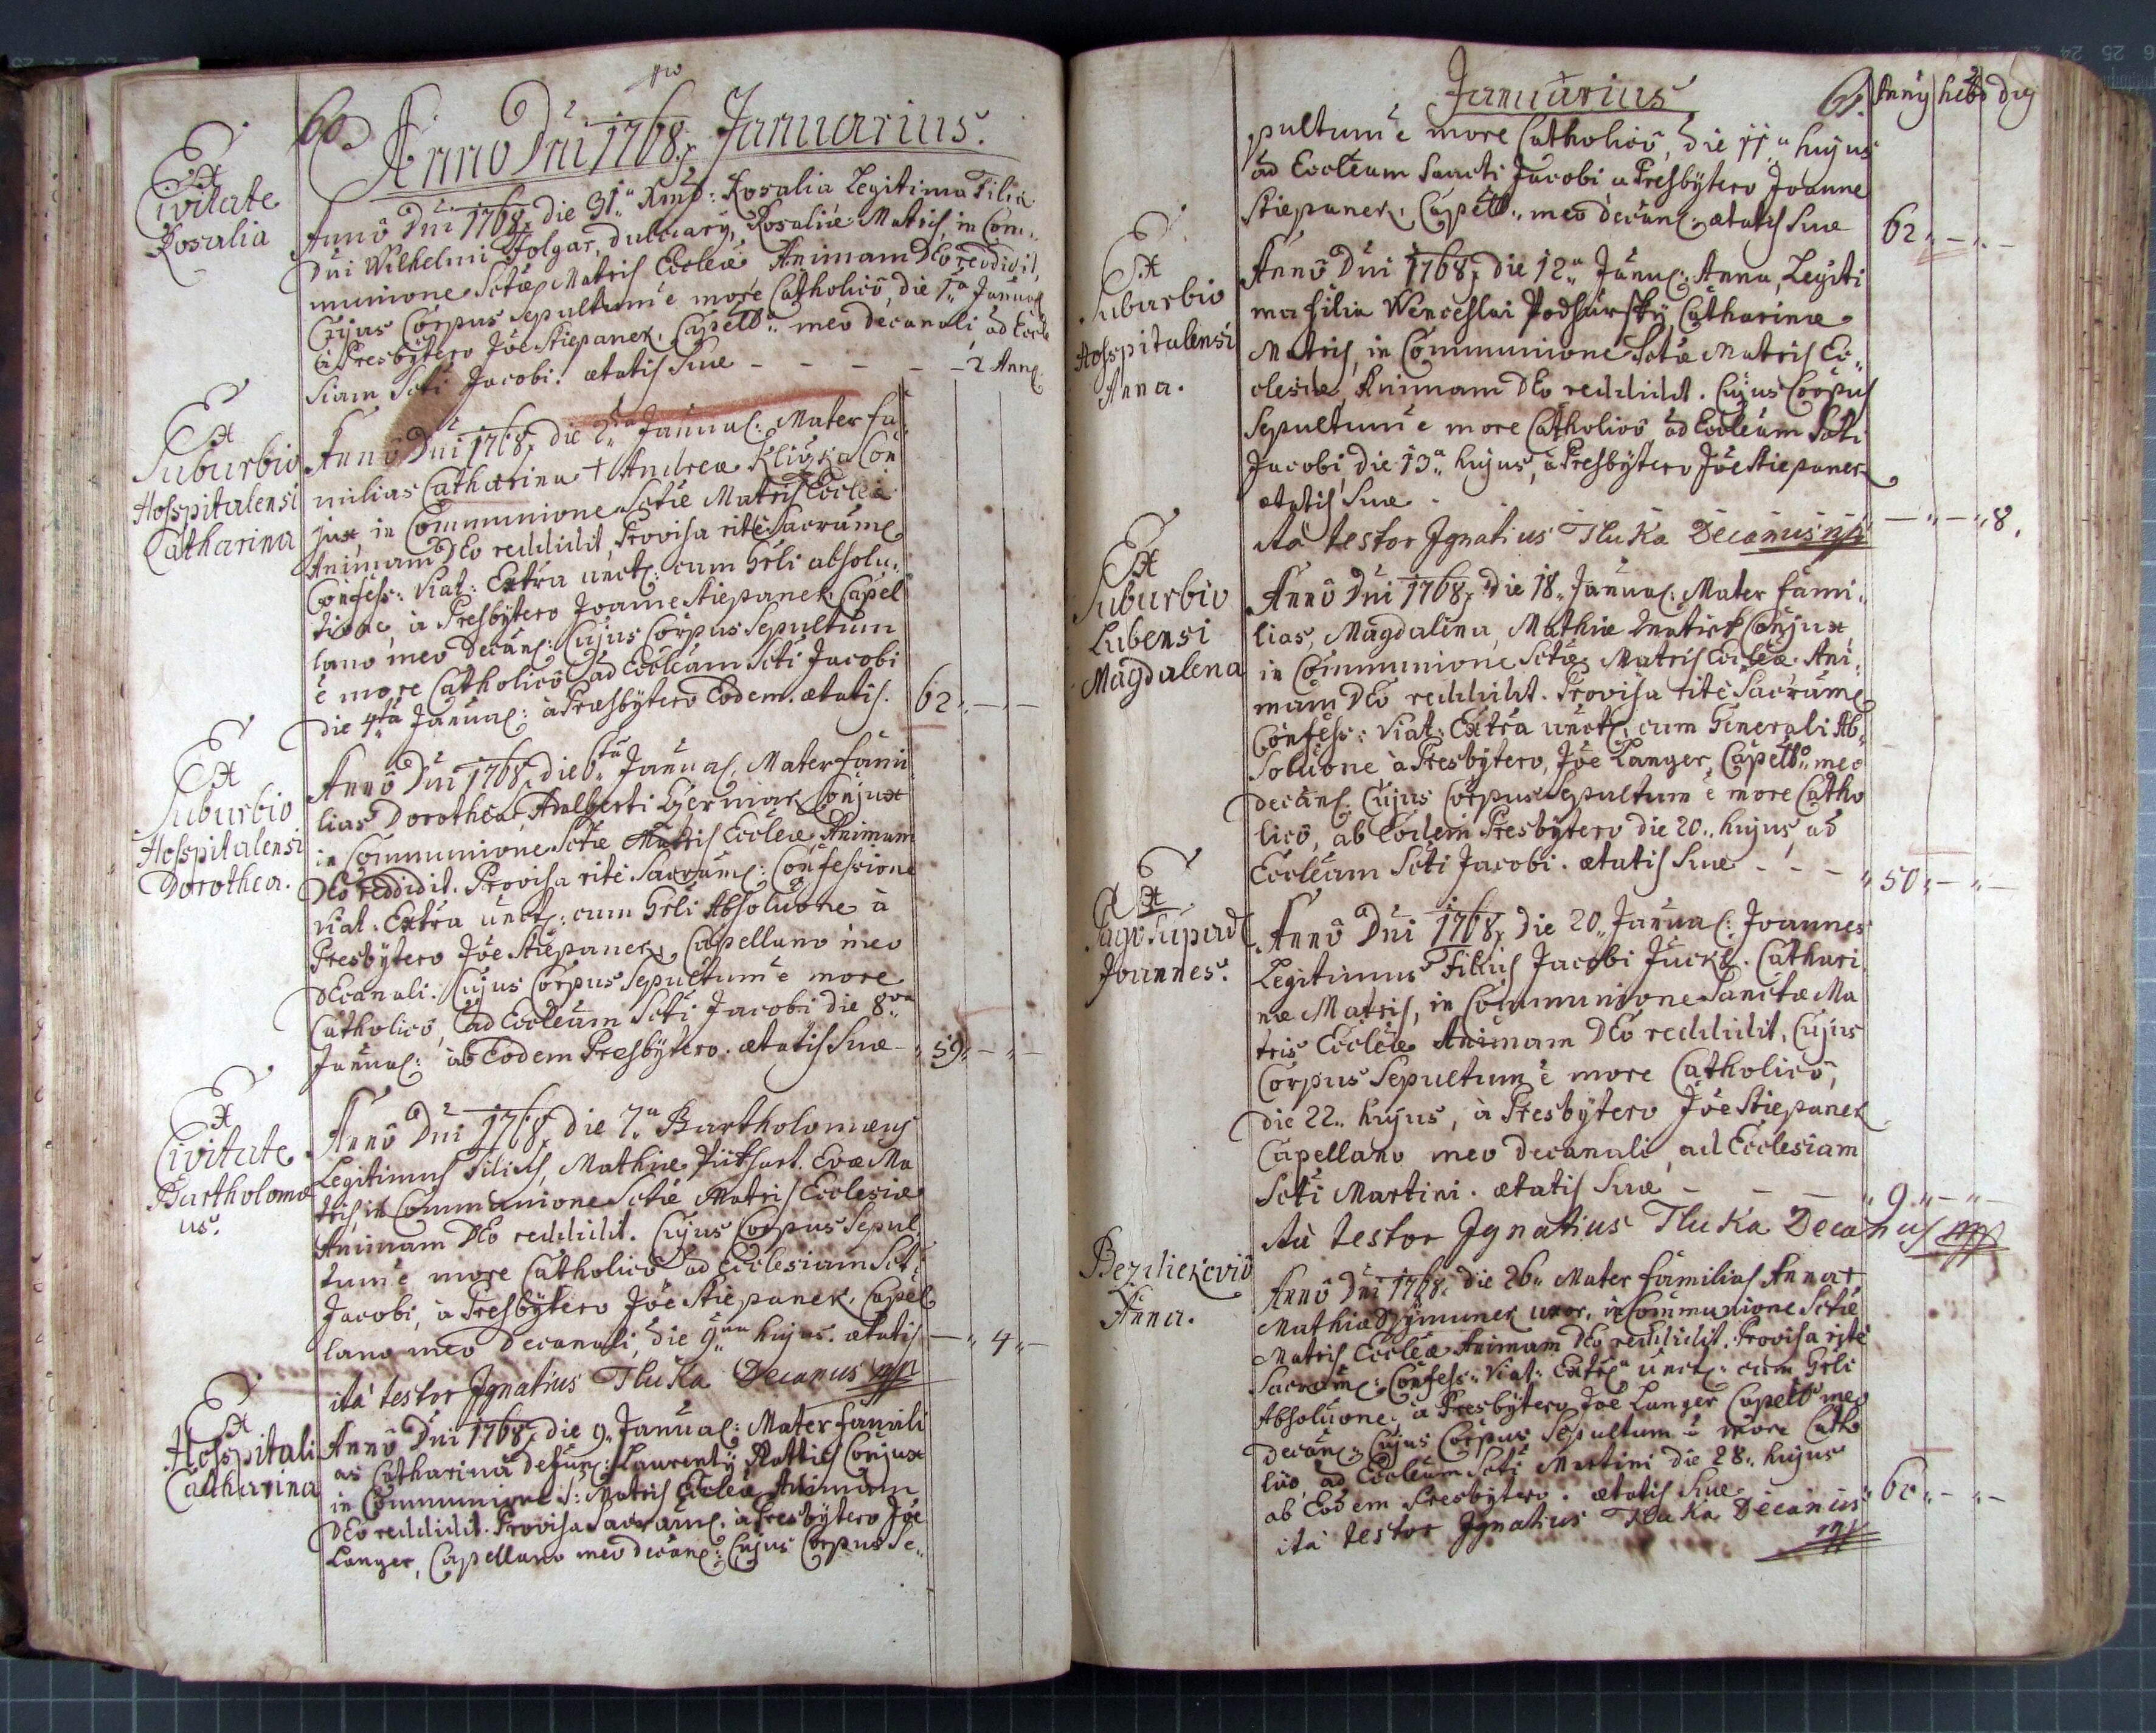 60.
Anno Dni 1768. Januarius.
Ex
Civitate
Rosalia
Annô Dni 1768, die 31a Xmb: Rosalia Legitima Filia
Dni Wilhelmi Holgar, Rosaliæ Matris, in Com„
munione Sctæ Matris Eccleæ Animam Deo reddidit,
Cujus Corpus Sepultum è more Catholicô, die 1a Januar
à Presbÿtero Jôe Stiepanek, Capello meo Decanali, ad Eccle
siam Scti Jacobi. ætatis Suæ - - - - - 2 Ann.
Ex
Suburbio
Hosspitalensi
Catharina
Annô Dni 1768, die 2da Januar: Mater fa„
milias Catharina + Andreæ Kliczka Con
jux, in Communione Sctæ Matris Eccleæ
Animam Deo reddidit, Provisa ritè Sacram
Confess: Viat: Extra unct: cum Grli absolu„
tione, à Presbÿtero Joanne Stiepanek Capel
lano meo Decan: Cujus Corpus Sepultum
è more Catholicô ad Eccleam Scti Jacobi
die 4ta Januar: à Præsbÿtero Eodem. ætatis. 62„—„—
Ex
Suburbio
Hosspitalensi
Dorothea.
Annô Dni 1768, die 6ta Januar, Mater fami
lias Dorothea, Adalberti Czermak Conjux
in Communione Sctæ Matris Eccleæ, Animam
Deo reddidit. Provisa ritè Sacram: Confessione
Viat: Extra unct: cum Grli Absoluone à
Presbÿtero Jôe Stiepanek, Capellano meo
Decanali: Cujus Corpus Sepultum è more
Catholicô, ad Eccleam Scti Jacobi die 8va
Januar: ab Eodem Presbÿtero. ætatis Suæ - „59„—„—
Ex
Civitate
Bartholomæ
us.
Annô Dni 1768, die 7a Bartholomæus
Legitimus Filius, Mathiæ Evæ Ma
tris, in Communione Sctæ Matris Ecclesiæ
Animam Deo reddidit. Cujus Corpus Sepul
tum è more Catholicô ad Ecclesiam Sct:
Jacobi, à Presbÿtero Jôe Stiepanek, Capel
lano meo Decanali, die 9na hujus. ætatis —„4„—
ità testor Jgnatius Tluka Decanus mp
Ex
Hosspitali
Catharina
Annô Dni 1768, die 9„ Januar: Mater famili
as Catharina Defunc: Laurentÿ Conjux
in Communione S: Matris Eccleæ Animam
Deo reddidit. Provisa Sacram, à Presbÿtero Jôe
Langer, Capellano meo Decan: Cujus Corpus Se„
Januarius
61. Anny hebd dies
pultum è more Catholicô, die 11a hujus
ad Eccleam Sancti Jacobi à Presbÿtero Joanne
Stiepanek, Capell„ meo Decan: ætatis Suæ 62„—„—
Ex
Suburbio
Hosspitalensi
Anna.
Annô Dni 1768, die 12a Januar: Anna, Legiti
ma filia Wenceslai Podhurskÿ, Catharinæ
Matris, in Communione Sctæ Matris Ec„
clesiæ, Animam Deo reddidit. Cujus Corpus
Sepultum è more Catholicô ad Eccleam Scti
Jacobi, die 13a hujus, à Presbÿtero Jôe Stiepanek
ætatis Suæ. —„—„8.
ità testor Jgnatius Tluka Decanus mp
Ex
Suburbio
Lubensi
Magdalena
Annô Dni 1768, die 18„ Januar: Mater fami„
lias, Magdalena, Mathiæ Conjux
in Communione Sctæ Matris Eccleæ Ani„
mam Deo reddidit. Provisa ritè Sacram
Confess: Viat: Extra unct: cum Generali Ab„
solutione à Presbÿtero, Jôe Langer, Capello meo
Decan: Cujus Corpus Sepultum è more Catho
licô, ab Eodem Presbÿtero die 20„ hujus, ad
Eccleam Scti Jacobi. ætatis Suæ - - - „50„—„—
Ex
Pago
Joannes.
Annô Dni 1768, die 20„ Januar: Joannes
Legitimus Filius Jacobi Cathari
næ Matris, in Communione Sanctæ Ma
tris Eccleæ Animam Deo reddidit, Cujus
Corpus Sepultum è more Catholicô,
die 22„ hujus, à Presbÿtero Jôe Stiepanek
Capellano meo Decanali, ad Ecclesiam
Scti Martini. ætatis Suæ - - - „9„—„—
ità testor Jgnatius Tluka Decanus mp
Anna.
Annô Dni 1768, die 26„ Mater familias Anna +
Mathiæ uxor, in Communione Sctæ
Matris Eccleæ Animam Deo reddidit. Provisa ritè
Sacram: Confess: Viat: Extra unct: cum Grli
Absoluone, à Presbÿtero Jôe Langer Capello meo
Decan: Cujus Corpus Sepultum è more Catho
licô, ad Eccleam Scti Martini die 28„ hujus
ab Eodem Presbÿtero. ætatis Suæ. 60„—„—
ità testor Jgnatius Tluka Decanus
mp